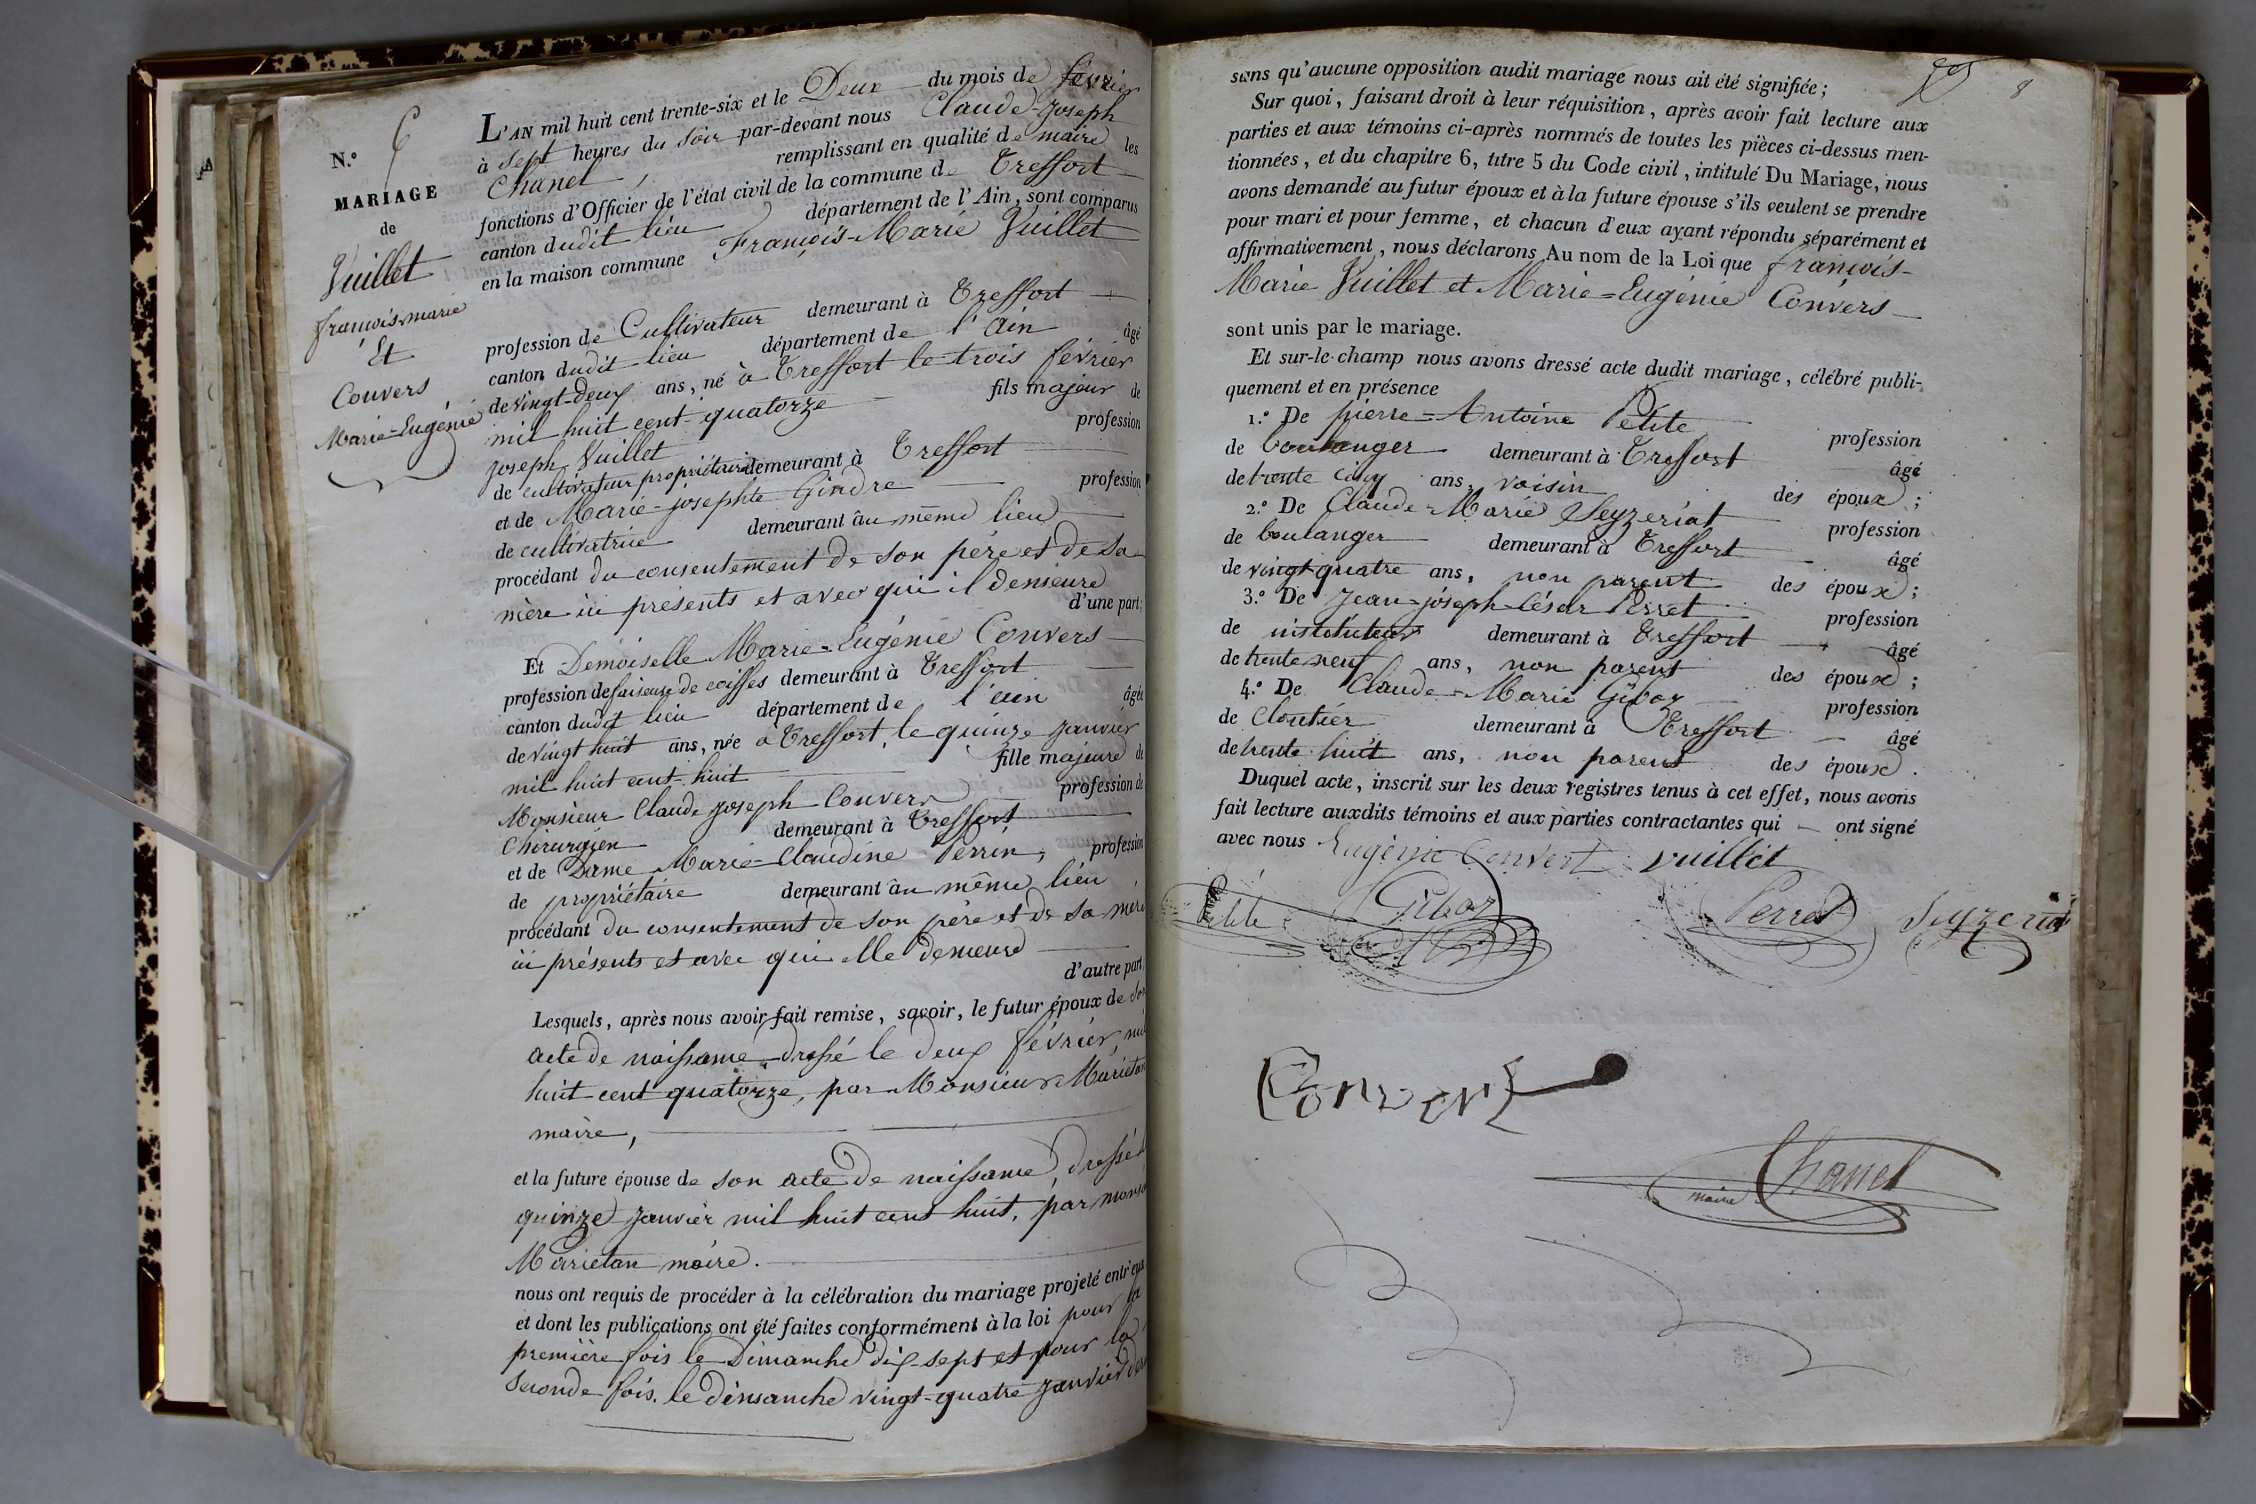 N.° 6
MARIAGE
de
Vuillet
françois marie
Et
Convers
Marie-Eugénie
L'AN mil huit cent trente-six et le Deux du mois de février
à sept heures du soir par-devant nous Claude-Joseph
Chanel, remplissant en qualité de maire les
fonctions d'Officier de l'état civil de la commune de Treffort
canton dudit lieu département de l'Ain, sont comparus
en la maison commune François-Marie Vuillet
profession de Cultivateur demeurant à Treffort
canton dudit lieu département de l'Ain âgé
de vingt-deux ans, né à Treffort le trois février
mil huit cent quatorze fils majeur de
Joseph Vuillet profession
de cultivateur propriétaire demeurant à Treffort
et de Marie-josephte Gindre profession
de cultivatrice demeurant au même lieu
procédant du consentement de son père et de sa
mère ici présents et avec qui il demeure
d'une part;
Et Demoiselle Marie-Eugénie Convers
profession de faiseuse de coiffes demeurant à Treffort
canton dudit lieu département de l'ain âgée
de vingt huit ans, née à Treffort, le quinze janvier
mil huit cent huit fille majeure de
Monsieur Claude Joseph Convers profession de
Chirurgien demeurant à Treffort
et de Dame Marie-Claudine Perrin, profession
de propriétaire demeurant au même lieu
procédant du consentement de son père et de sa mère
ici présents et avec qui elle demeure
d'autre part,
Lesquels, après nous avoir fait remise, savoir, le futur époux de son
acte de naissance dressé le deux février, mil
huit cent quatorze, par Monsieur Marietan
maire,
et la future épouse de son acte de naissance, dressé le
quinze janvier mil huit cent huit, par monsr
Marietan maire.
nous ont requis de procéder à la célébration du mariage projeté entr'eux
et dont les publications ont été faites conformément à la loi pour la
première fois le Dimanche dix-sept et pour la
seconde fois le dimanche vingt-quatre janvier der
sans qu'aucune opposition audit mariage nous ait été signifiée;
Sur quoi, faisant droit à leur réquisition, après avoir fait lecture aux
parties et aux témoins ci-après nommés de toutes les pièces ci-dessus men-
tionnées, et du chapitre 6, titre 5 du Code civil, intitulé Du Mariage, nous
avons demandé au futur époux et à la future épouse s'ils veulent se prendre
pour mari et pour femme, et chacun d'eux ayant répondu séparément et
affirmativement, nous déclarons Au nom de la Loi que françois-
Marie Vuillet et Marie=Eugénie Convers
sont unis par le mariage.
Et sur-le-champ nous avons dressé acte dudit mariage, célébré publi-
quement et en présence
1.° De pierre=Antoine Petite profession
de boulanger demeurant à Treffort âgé
de trente cinq ans, voisin des époux;
2.° De Claude-Marie Seyzeriat profession
de boulanger demeurant à Treffort âgé
de vingt quatre ans, non parent des époux;
3.° De Jean-joseph-César Perret profession
de instituteur demeurant à Treffort âgé
de trente neuf ans, non parent des époux;
4.° De Claude-Marie Giboz profession
de Cloutier demeurant à Treffort âgé
de trente huit ans, non parent des époux.
Duquel acte, inscrit sur les deux registres tenus à cet effet, nous avons
fait lecture auxdits témoins et aux parties contractantes qui ont signé
avec nous Eugénie Convert vuillet
Petite Giboz Perret Seyzeriat
Convert
maire Chanel